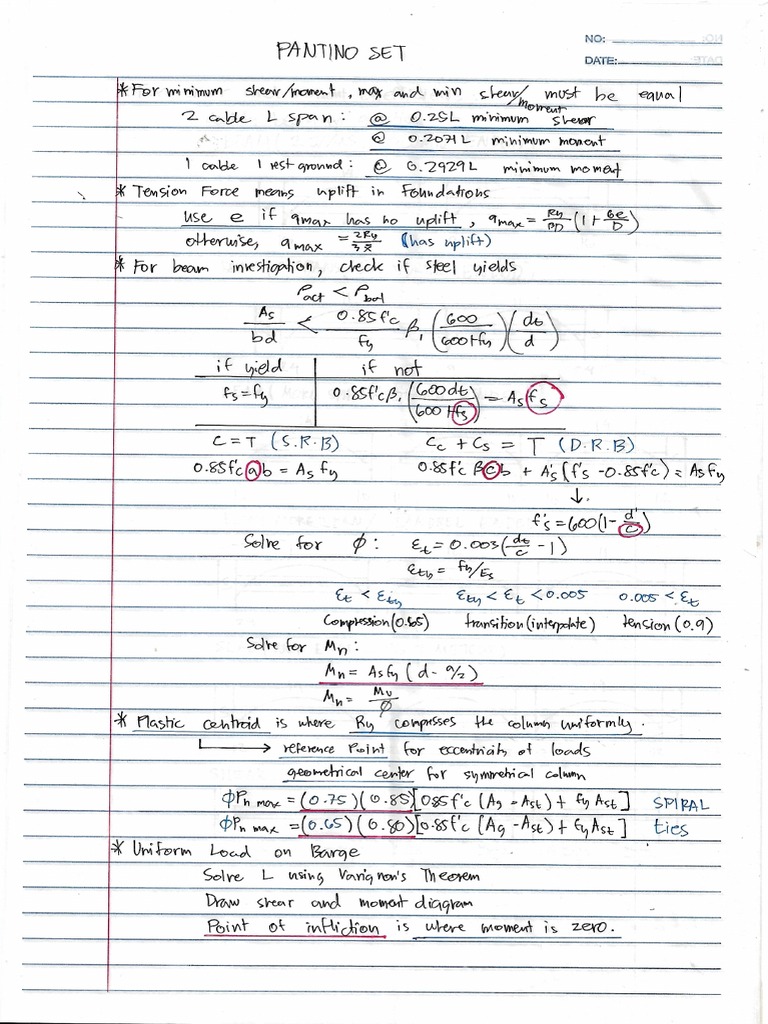 NO:
DATE:
PANTINO SET
* For minimum shear/moment, max and min shear/moment must be equal
2 cable L span: @ 0.25L minimum shear
@ 0.2071L minimum moment
1 cable 1 rest ground: @ 0.2929L minimum moment
* Tension Force means uplift in Foundations
use e if qmax has no uplift, qmax = Ry/BD (1 + 6e/D)
otherwise, qmax = 2Ry/3x̄ (has uplift)
* For beam investigation, check if steel yields
ρact < ρbal
As/bd < 0.85f'c/fy β₁ (600/600+fy)(dt/d)
if yield if not
fs = fy 0.85f'cβ₁ (600dt/600+fs) = As fs
C = T (S.R.B) Cc + Cs = T (D.R.B)
0.85f'c a b = As fy 0.85f'c β c b + A's (f's - 0.85f'c) = As fy
↓
f's = 600(1 - d'/c)
Solve for φ: εt = 0.003(dt/c - 1)
εty = fy/Es
εt < εty εty < εt < 0.005 0.005 < εt
compression (0.65) transition (interpolate) tension (0.9)
Solve for Mn:
Mn = As fy (d - a/2)
Mn = Mu/φ
* Plastic centroid is where Ry compresses the column uniformly.
→ reference point for eccentricity of loads
geometrical center for symmetrical column
φPn max = (0.75)(0.85)[0.85f'c (Ag - Ast) + fy Ast] SPIRAL
φPn max = (0.65)(0.80)[0.85f'c (Ag - Ast) + fy Ast] ties
* Uniform Load on Barge
Solve L using Varignon's Theorem
Draw shear and moment diagram
Point of infliction is where moment is zero.